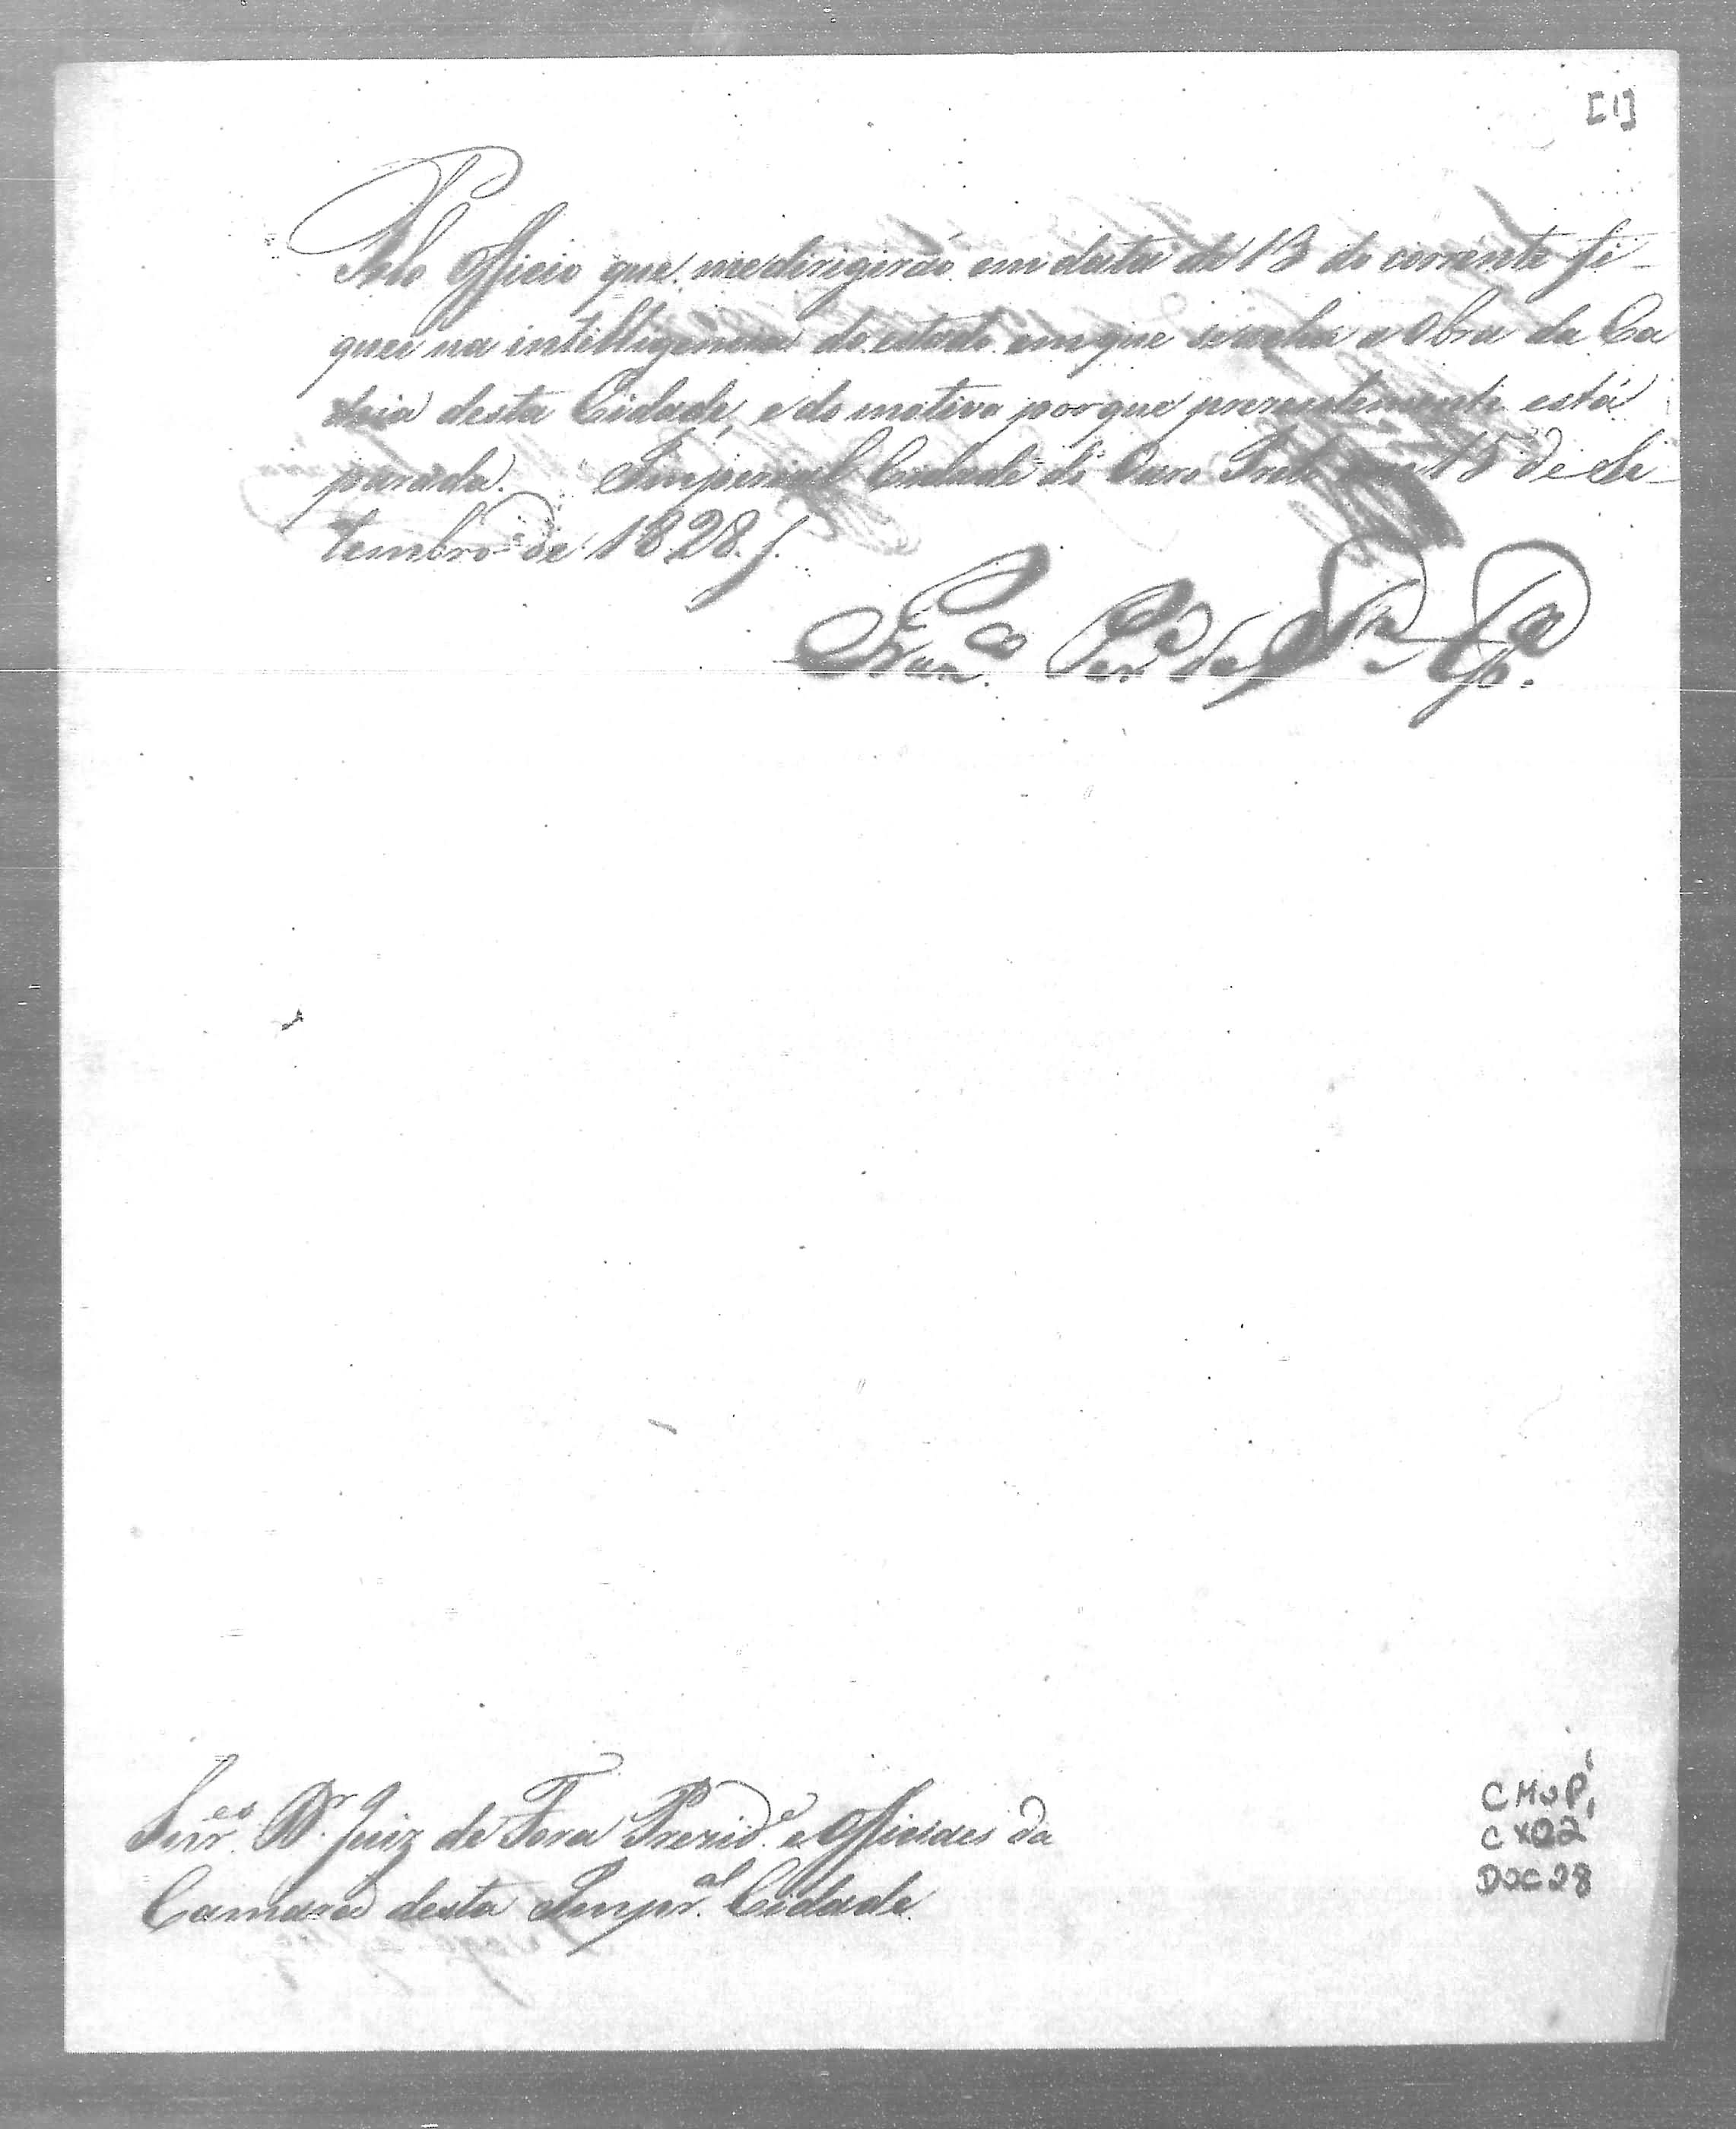 [1]
Pelo Officio que me dirigirão em data de 13 do corrente fi-
quei na intelligencia do estado em que se acha a Obra da Ca
deia desta Cidade, e do motivo porque prezentemente está
parada. Imperial Cidade do Ouro Preto em 15 de Se-
tembro de 1828.
Fran.co Per.a de S.ta Ap.a
Snr.es D.r Juiz de Fora Prezid.e e Officiaes da
Camara desta Imp.al Cidade
CMOP
CX02
DOC28